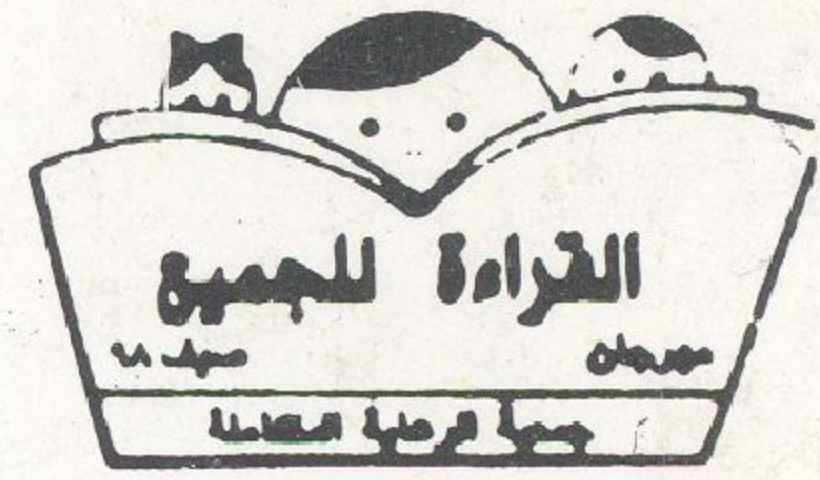 القراءة للجميع
مهرجان صيف ٩٨
جمعية الرعاية المتكاملة